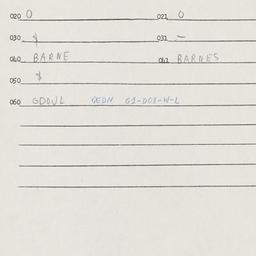 020 0 021 0
030 $ 031 —
040 BARNE 041 BARNES
050 $
060 GDOUL GEDN G1-D03-W-L